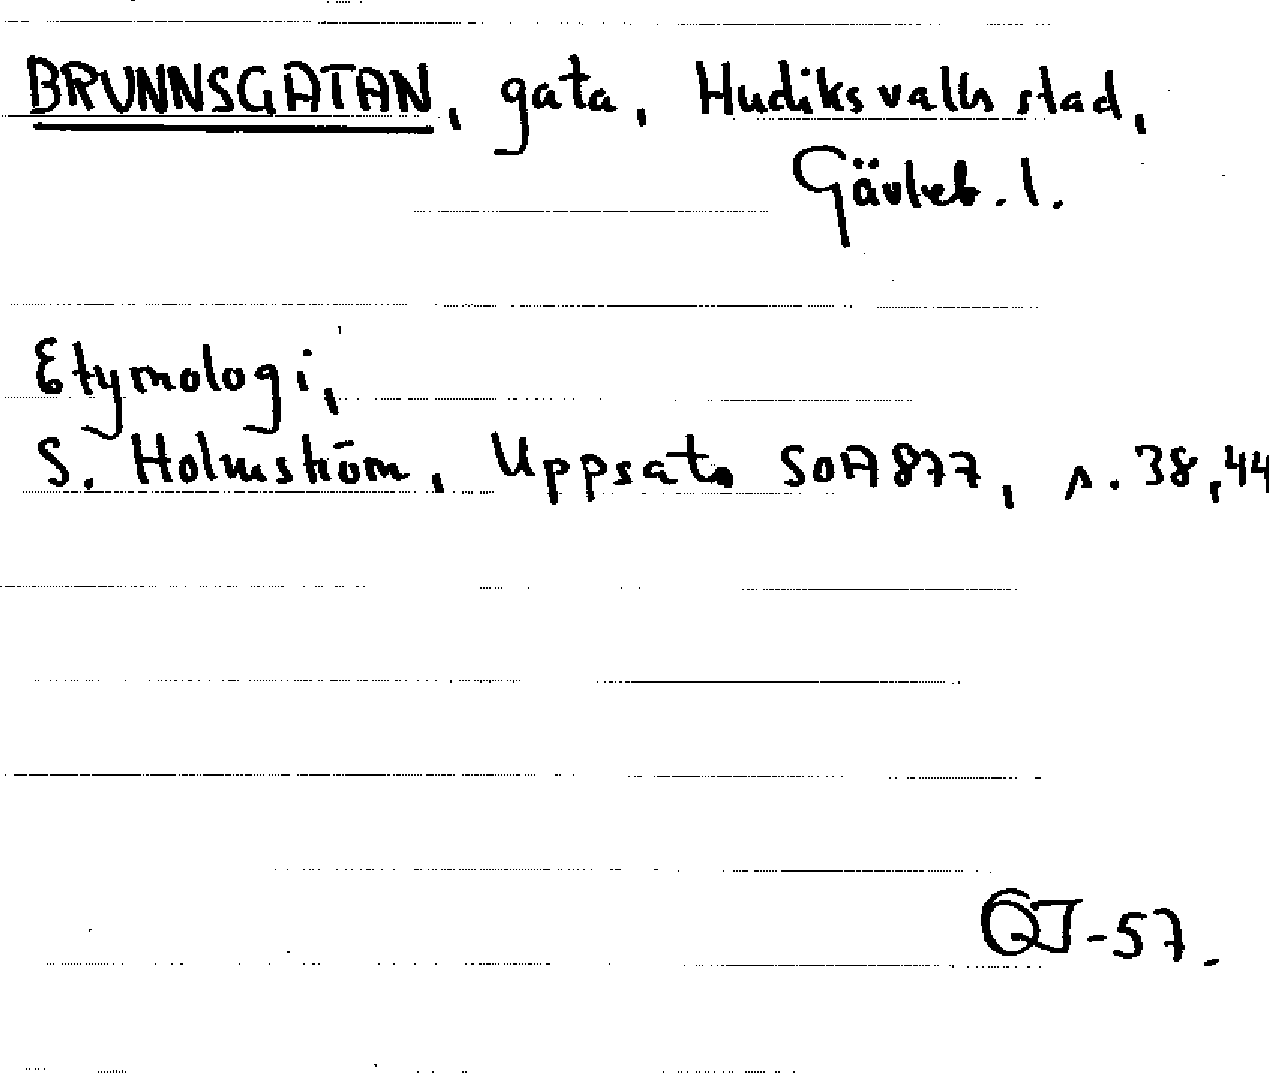 BRUNNSGATAN, gata, Hudiksvalls stad,
Gävleb. l.
Etymologi,
S. Holmström, Uppsats SOA 877, s. 38, 44
-57.